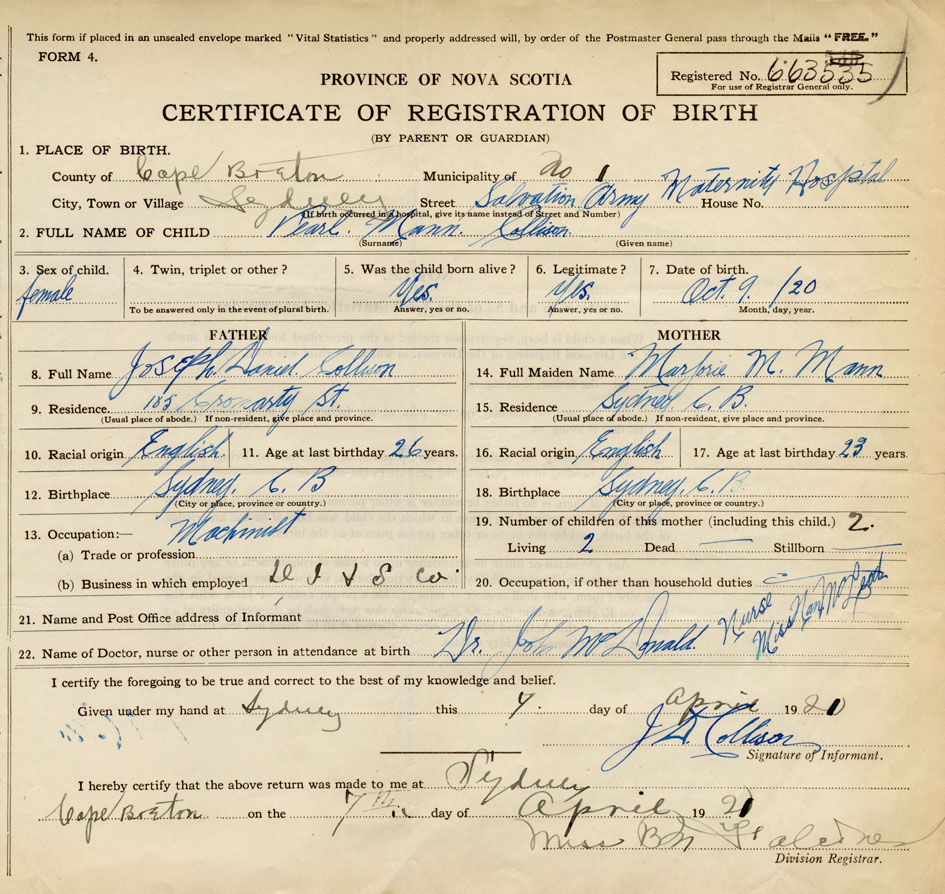 This form if placed in an unsealed envelope marked "Vital Statistics" and properly addressed will, by order of the Postmaster General pass through the Mails "FREE."
FORM 4.
PROVINCE OF NOVA SCOTIA
Registered No. 663535
For use of Registrar General only.
CERTIFICATE OF REGISTRATION OF BIRTH
(BY PARENT OR GUARDIAN)
1. PLACE OF BIRTH.
County of Cape Breton Municipality of No 1
City, Town or Village Sydney Street Salvation Army Maternity Hospital House No.
(If birth occurred in a hospital, give its name instead of Street and Number)
2. FULL NAME OF CHILD Pearl. Mann. Collison
(Surname) (Given name)
3. Sex of child. female
4. Twin, triplet or other?
To be answered only in the event of plural birth.
5. Was the child born alive? Yes.
Answer, yes or no.
6. Legitimate? Yes.
Answer, yes or no.
7. Date of birth. Oct. 9. /20
Month, day, year.
FATHER
8. Full Name Joseph. Daniel Collison
9. Residence. 185 Cromarty St.
(Usual place of abode.) If non-resident, give place and province.
10. Racial origin English. 11. Age at last birthday 26 years.
12. Birthplace Sydney. C. B
(City or place, province or country.)
13. Occupation:— Machinist
(a) Trade or profession
(b) Business in which employed D I & S Co.
MOTHER
14. Full Maiden Name Marjorie M. Mann
15. Residence Sydney C. B.
(Usual place of abode.) If non-resident, give place and province.
16. Racial origin English 17. Age at last birthday 23 years
18. Birthplace Sydney. C. B
(City or place, province or country.)
19. Number of children of this mother (including this child.) 2.
Living 2 Dead — Stillborn —
20. Occupation, if other than household duties —
21. Name and Post Office address of Informant
22. Name of Doctor, nurse or other person in attendance at birth Dr. John McDonald. Nurse Miss Nan McLeod
I certify the foregoing to be true and correct to the best of my knowledge and belief.
Given under my hand at Sydney this 7 day of April 1921
J D. Collison
Signature of Informant.
I hereby certify that the above return was made to me at Sydney
Cape Breton on the 7th day of April 1921
Miss B M
Division Registrar.